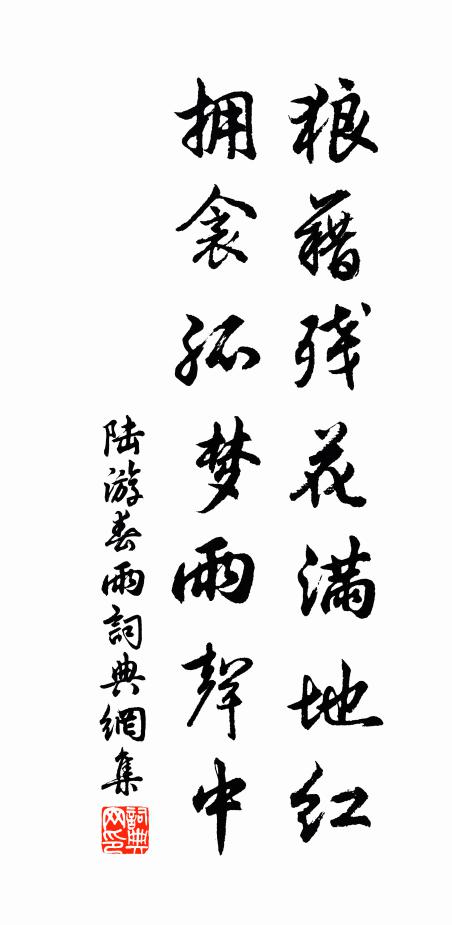 狼藉残花满地红
拥衾孤梦雨聲中
陆游春雨詞典網集
詞典网印